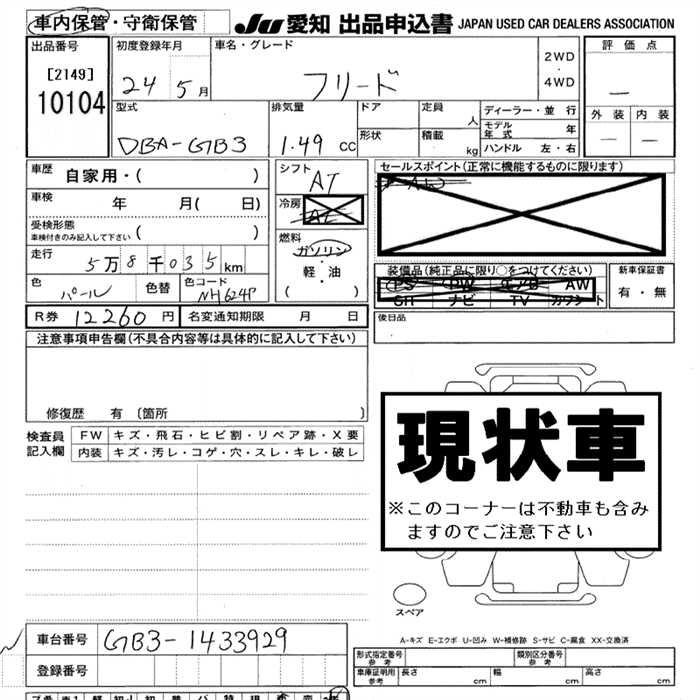 車内保管・守衛保管
JU 愛知 出品申込書 JAPAN USED CAR DEALERS ASSOCIATION
出品番号 初度登録年月 車名・グレード 2WD・4WD 評価点
[2149]
10104
24 5月 フリード
外装 内装
型式 排気量 ドア 定員 人 ディーラー・並行
モデル年式 年
DBA-GB3 1.49 cc 形状 積載 kg ハンドル 左・右
車歴 自家用・( ) シフト AT セールスポイント(正常に機能するものに限ります)
車検 年 月( 日) 冷房 AC
受検形態
車検付きのみ記入して下さい ( )
燃料 ガソリン・軽・油 ( )
走行 5万8千035km
装備品(純正品に限り○をつけてください) 新車保証書
PS PW AW 有・無
ナビ TV
色 パール 色替 色コード NH624P
R券 12260円 名変通知期限 月 日 後日品
注意事項申告欄(不具合内容等は具体的に記入して下さい)
修復歴 有〔箇所 〕
現状車
※このコーナーは不動車も含み
ますのでご注意下さい
検査員記入欄 FW キズ・飛石・ヒビ割・リペア跡・X要
内装 キズ・汚レ・コゲ・穴・スレ・キレ・破レ
スペア
A-キズ E-エクボ U-凹み W-補修跡 S-サビ C-腐食 XX-交換済
車台番号 GB3-1433929
登録番号
形式指定番号 参考 類別区分番号 参考
車庫証明用 参考 長さ cm 幅 cm 高さ cm